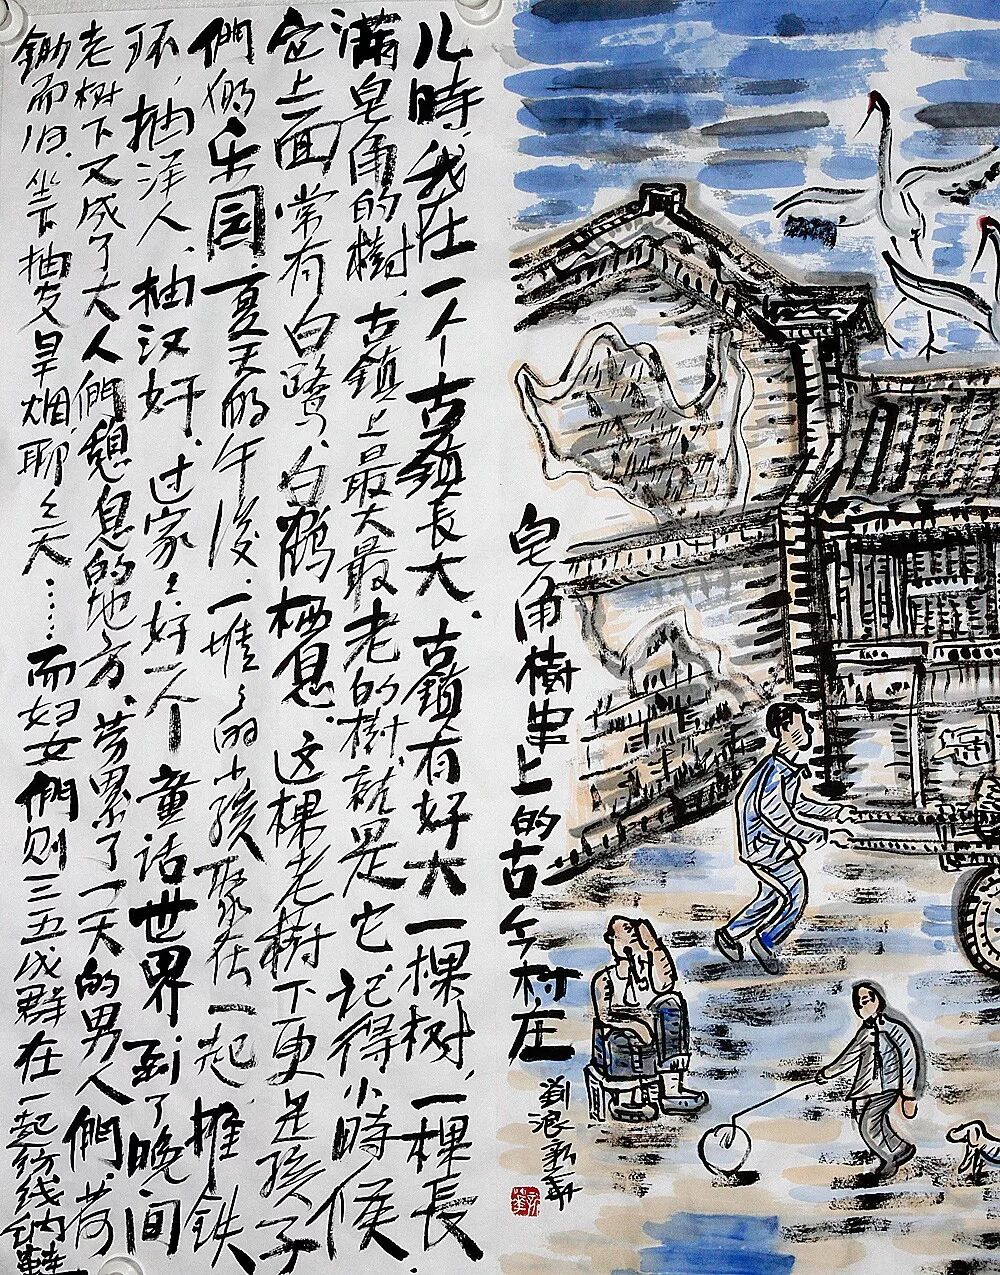 皂角樹串上的古今村庄
儿時，我在一个古鎮長大、古鎮有好大一棵树，一棵長
滿皂角的樹，古鎮上最大最老的樹就是它記得小時候，
它上面常有白鷺、白鶴栖息、这棵老樹下更是孩子
們的乐园夏天的午後，一堆々的小孩聚在一起，推铁
环，抽洋人、抽汉奸，过家々好一个童话世界到了晚间
老树下又成了大人們憩息的地方、劳累了一天的男人們，荷
鋤而归，坐下抽支旱烟，聊々天……而妇女們则三五成群在一起纺线纳鞋